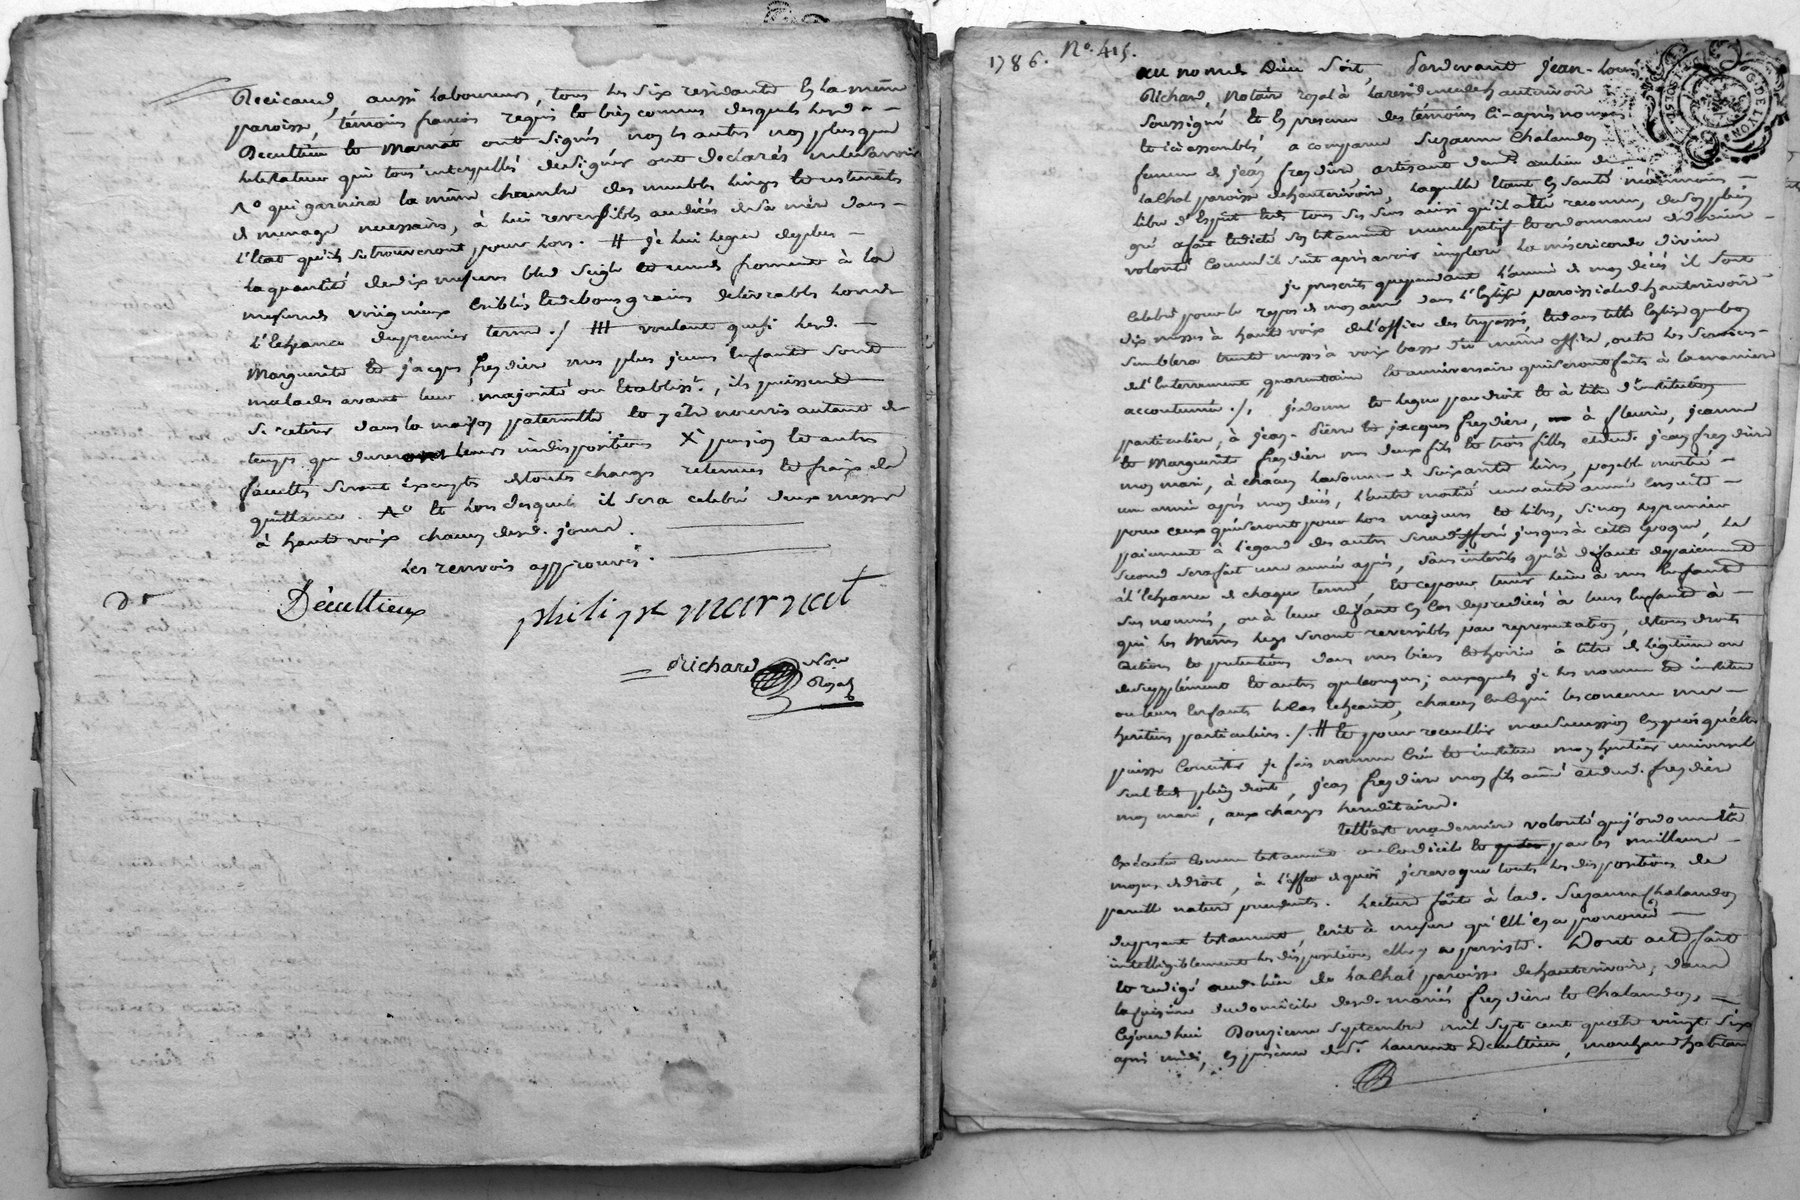 Recicaud, aussi laboureurs, tous les six residants en la même
paroisse, témoins françois requis et bien connus desquels lesd. s.
Decultieux et Marnat ont signés non les autres non plus que
la testatrice qui tous interpellés de signer ont declarés ne le savoir
1° qui garnira la même chambre des meubles linges et ustensils
de menage necessaires, à lui reversibles au décés de sa mère dans
l'état qu'ils se trouveront pour lors. # je lui legue de plus
la quantité de dix mesures bled seigle et une de froment à la
mesure de criblés et de bons grains delivrables lors de
l'échéance du premier terme ./ ### voulant que si lesd.
Marguerite et jacques freydiere mes plus jeunes enfants sont
malades avant leur majorité ou establisst., ils puissent
se retirer dans la maison paternelle et y être nourris autant de
temps que dureront leurs indispositions X pension et autres
facultés seront exempts de toutes charges retenues et fraix de
quittance. A° et lors desquels il sera celebré deux messes
à haute voix chacun desd. jours.
Les renvois approuvés.
Décultieux
philipe marnat
Richard Nore
Royal
1786. N°. 415.
G. DE LYON
au nom de Dieu soit, Pardevant jean-louis
Richard, Notaire royal à la residence de hauterivoire
soussigné et en presence des témoins ci-après nommés
et ici assemblés, a comparu Suzanne Chalandon
femme de jean freydiere, artisant demt. au lieu de
la Chal paroisse de hauterivoire, laquelle étant en santé memoire
libre d'Esprit et de tous ses sens ainsi qu'il a été reconnu, de son plein
gré a fait et dicté son testament nuncupatif et ordonnance de derniere
volonté comme il suit après avoir imploré la misericorde divine
je prescrits que pendant l'année de mon décés il soit
celebré pour le repos de mon ame dans l'Eglise paroissiale de hauterivoire
dix messes à haute voix de l'office des trepassés, et dans telle Eglise que bon
semblera trente messes à voix basse du même office, outre les services
de l'enterrement, quarantaine et anniversaire qui seront faits à la maniere
accoutumée ./. je donne et legue par droit et à titre d'institution
particuliere, à jean-Pierre et jacques freydiere, à fleurie, jeanne
et Marguerite freydiere mes deux fils et trois filles et dud. jean freydiere
mon mari, à chacun la somme de soixante livres, payable moitié
un année après mon décés, l'autre moitié une autre année ensuite
pour ceux qui seront pour lors majeurs et libres, sinon le premier
paiement à l'egard des autres sera differé jusques à cette époque, le
second sera fait une année après, sans intérêts qu'à défaut de paiement
à l'échéance de chaque terme, et ce pour tenir lieu à mes enfants
sus nommés, ou à leur défaut en cas de predécés à leurs enfants à
qui les mêmes legs seront reversibles par representation, de tous droits
actions et pretentions dans mes biens et hoirie à titre de légitime ou
de supplément et autres quelconques; auxquels je les nomme et institue
ou leurs enfants le cas échéant, chacun en ce qui les concerne mes
heritiers particuliers ./. # et pour recueillir ma succession en quoi qu'elle
puisse consister je fais nomme crée et institue mon heritier universel
seul et de plein droit, jean freydiere mon fils ainé et dud. freydiere
mon mari, aux charges hereditaires.
telle est ma derniere volonté que j'ordonne être
exécutée comme testament ou codicile et par les meilleurs
moyens de droit, à l'effet de quoi je revoque toutes les dispositions de
pareille nature precedentes. Lecture faite à lad. Suzanne Chalandon
du present testament, écrit à mesure qu'elle l'a prononcé
intelligiblement les dispositions elle y a persisté. Dont acte fait
et redigé aud. lieu de la Chal paroisse de hauterivoire, dans
la cuisine du domicile desd. mariés freydiere et Chalandon,
cejourdhui Douzieme septembre mil sept cent quatre vingt six
après midi, en presence de sr. Laurent Decultieux, marchand habitant